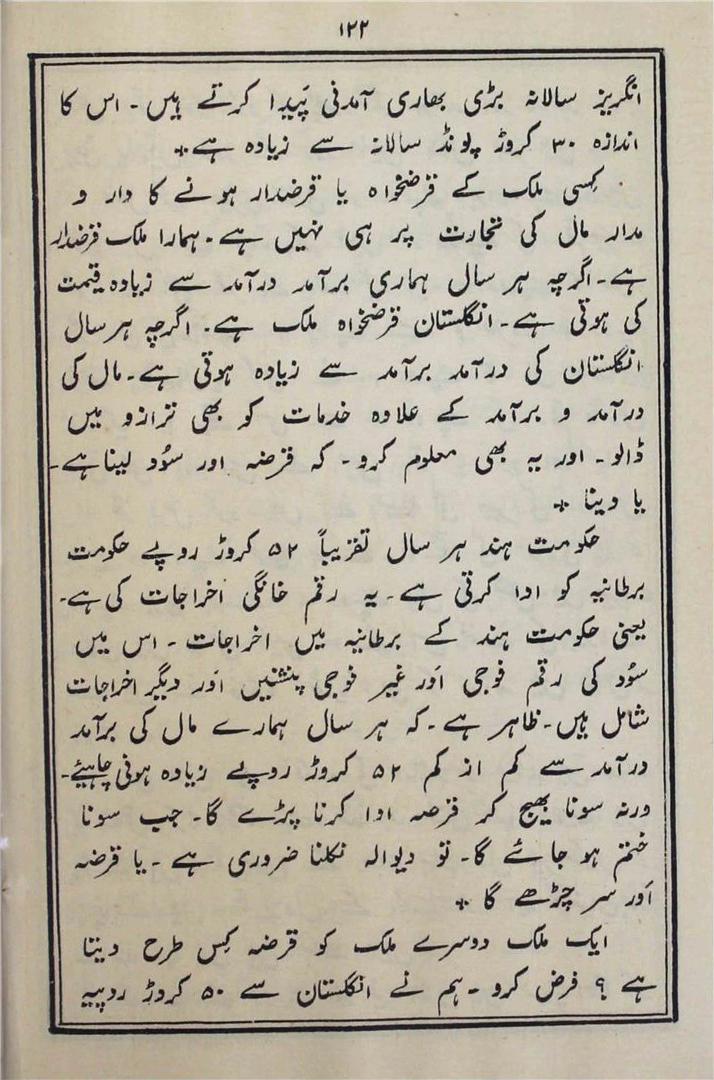 ۱۲۲
انگریز سالانہ بڑی بھاری آمدنی پَیدا کرتے ہیں۔ اس کا
اندازہ ۳۰ کروڑ پونڈ سالانہ سے زیادہ ہے٭
کِسی ملک کے قرضخواہ یا قرضدار ہونے کا دار و
مدار مال کی تجارت پر ہی نہیں ہے۔ ہمارا ملک قرضدار
ہے۔ اگرچہ ہر سال ہماری برآمد درآمد سے زیادہ قیمت
کی ہوتی ہے۔ انگلستان قرضخواہ ملک ہے۔ اگرچہ ہر سال
انگلستان کی درآمد برآمد سے زیادہ ہوتی ہے۔ مال کی
درآمد و برآمد کے علاوہ خدمات کو بھی ترازو میں
ڈالو۔ اور یہ بھی معلوم کرو۔ کہ قرضہ اور سُود لینا ہے۔
یا دینا ٭
حکومت ہند ہر سال تقریباً ۵۲ کروڑ روپے حکومت
برطانیہ کو ادا کرتی ہے۔ یہ رقم خانگی اخراجات کی ہے۔
یعنی حکومت ہند کے برطانیہ میں اخراجات۔ اس میں
سُود کی رقم فوجی اَور غیر فوجی پنشنیں اَور دیگر اخراجات
شامل ہیں۔ ظاہر ہے۔ کہ ہر سال ہمارے مال کی برآمد
درآمد سے کم از کم ۵۲ کروڑ روپے زیادہ ہونی چاہیئے۔
ورنہ سونا بھیج کر قرضہ ادا کرنا پڑے گا۔ جب سونا
ختم ہو جائے گا۔ تو دیوالہ نکلنا ضروری ہے۔ یا قرضہ
اَور سر چڑھے گا ٭
ایک ملک دوسرے ملک کو قرضہ کِس طرح دیتا
ہے ؟ فرض کرو۔ ہم نے انگلستان سے ۵۰ کروڑ روپیہ